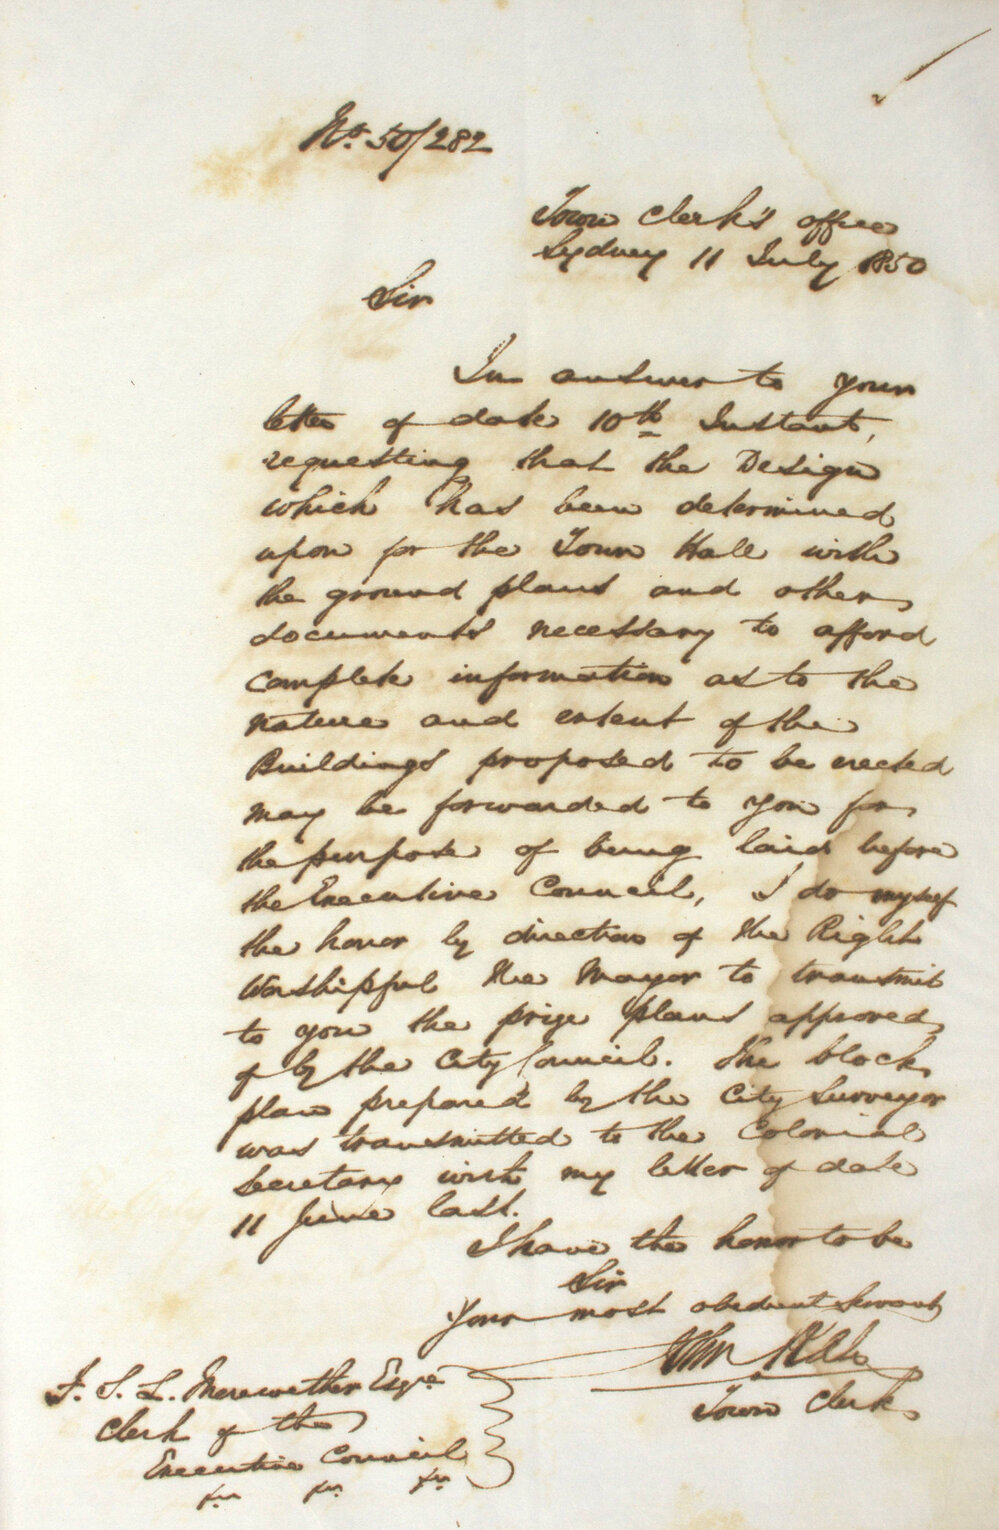 No. 50/282
Town Clerk's office
Sydney 11 July 1850
Sir
In answer to your
letter of date 10th Instant,
requesting that the Design
which has been determined
upon for the Town Hall with
the ground plans and other
documents necessary to afford
complete information as to the
nature and extent of the
Buildings proposed to be erected
may be forwarded to you for
the purpose of being laid before
the Executive Council, I do myself
the honor by direction of the Right
Worshipful the Mayor to transmit
to you the prize plans approved
of by the City Council. The block
plan prepared by the City Surveyor
was transmitted to the Colonial
Secretary with my letter of date
11 June last.
I have the honor to be
Sir
Your most obedient Servant
John
Town Clerk
F. S. L. Merewether Esqre
Clerk of the
Executive Council